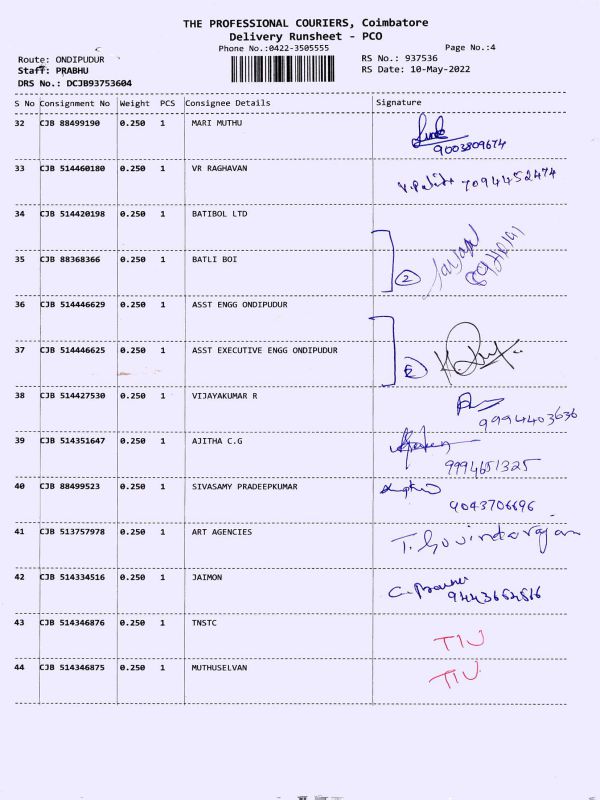 THE PROFESSIONAL COURIERS, Coimbatore
Delivery Runsheet - PCO
Phone No.:0422-3505555
Page No.:4
Route: ONDIPUDUR
RS No.: 937536
Staff: PRABHU
RS Date: 10-May-2022
DRS No.: DCJB93753604
S No Consignment No Weight PCS Consignee Details Signature
32 CJB 88499190 0.250 1 MARI MUTHU
9003809674
33 CJB 514460180 0.250 1 VR RAGHAVAN 7094452474
34 CJB 514420198 0.250 1 BATIBOL LTD
35 CJB 88368366 0.250 1 BATLI BOI
2
36 CJB 514446629 0.250 1 ASST ENGG ONDIPUDUR
37 CJB 514446625 0.250 1 ASST EXECUTIVE ENGG ONDIPUDUR
38 CJB 514427530 0.250 1 VIJAYAKUMAR R
9994403636
39 CJB 514351647 0.250 1 AJITHA C.G
9994651325
40 CJB 88499523 0.250 1 SIVASAMY PRADEEPKUMAR
9043706696
41 CJB 513757978 0.250 1 ART AGENCIES T. Govindarajan
42 CJB 514334516 0.250 1 JAIMON
43 CJB 514346876 0.250 1 TNSTC
TIU
44 CJB 514346875 0.250 1 MUTHUSELVAN
TIU